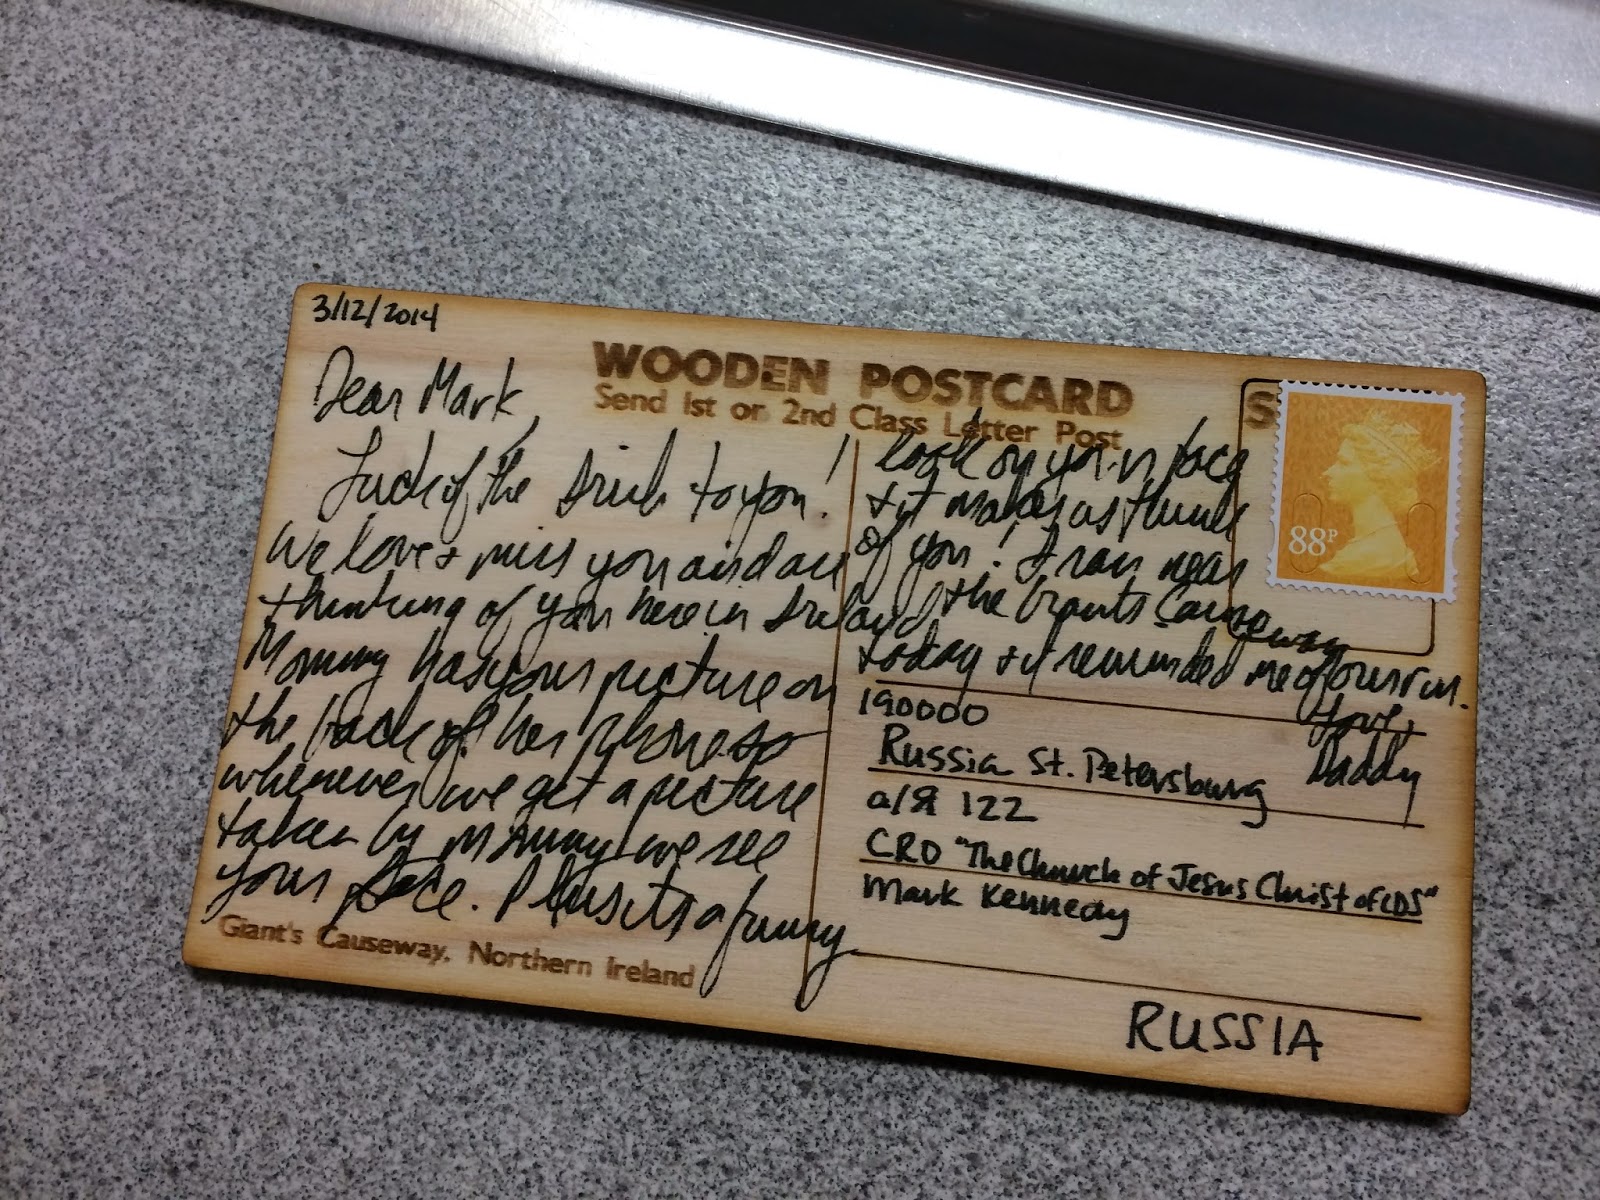 3/12/2014
WOODEN POSTCARD
Send 1st or 2nd Class Letter Post
Dear Mark,
Luck of the Irish to you!
We love + miss you and are
thinking of you here in Ireland
Mommy has your picture on
the back of her phone so
whenever we get a picture
taken by Mommy we see
your face. Plus its a funny
Giant's Causeway, Northern Ireland
look on your face
+ it makes us think
of you! I ran near
the Giants Causeway
today + it reminded me of our run.
Love,
Daddy
S
88P
190000
Russia St. Petersburg
a/я 122
CRO "The Church of Jesus Christ of LDS"
Mark Kennedy
RUSSIA